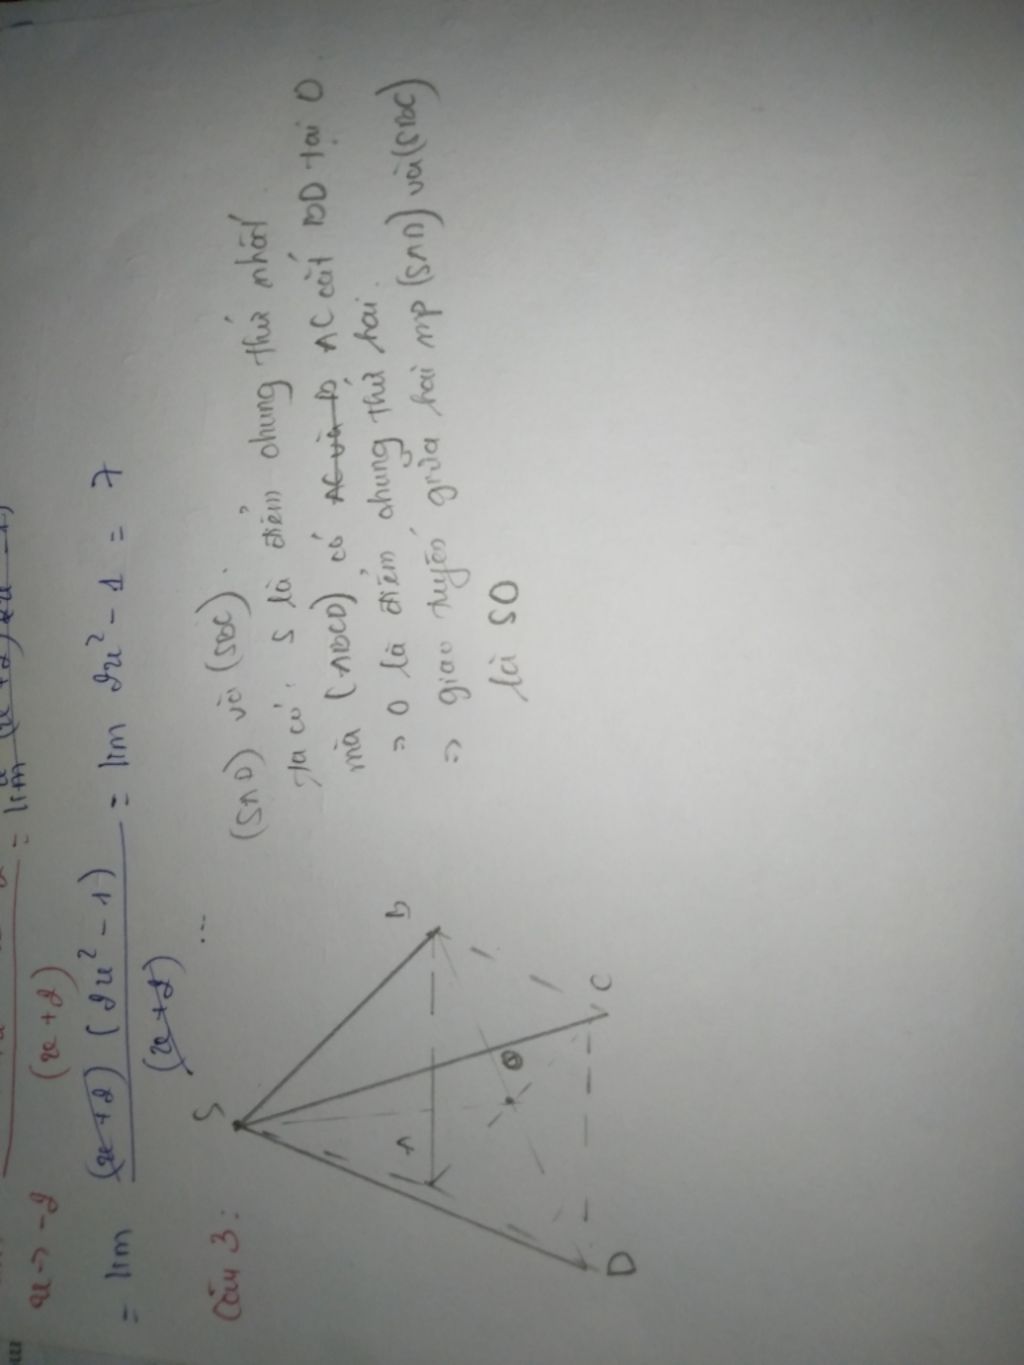 = lim
x -> -2
(x+2)
= lim (x+2)(2x² - 1) / (x+2) = lim 2x² - 1 = 7
Câu 3:
...
S
A
B
O
D
C
(SAD) và (SBC).
Ta có: S là điểm chung thứ nhất
mà (ABCD) có AC và B AC cắt BD tại O
=> O là điểm chung thứ hai.
=> giao tuyến giữa hai mp (SAD) và (SBC)
là SO